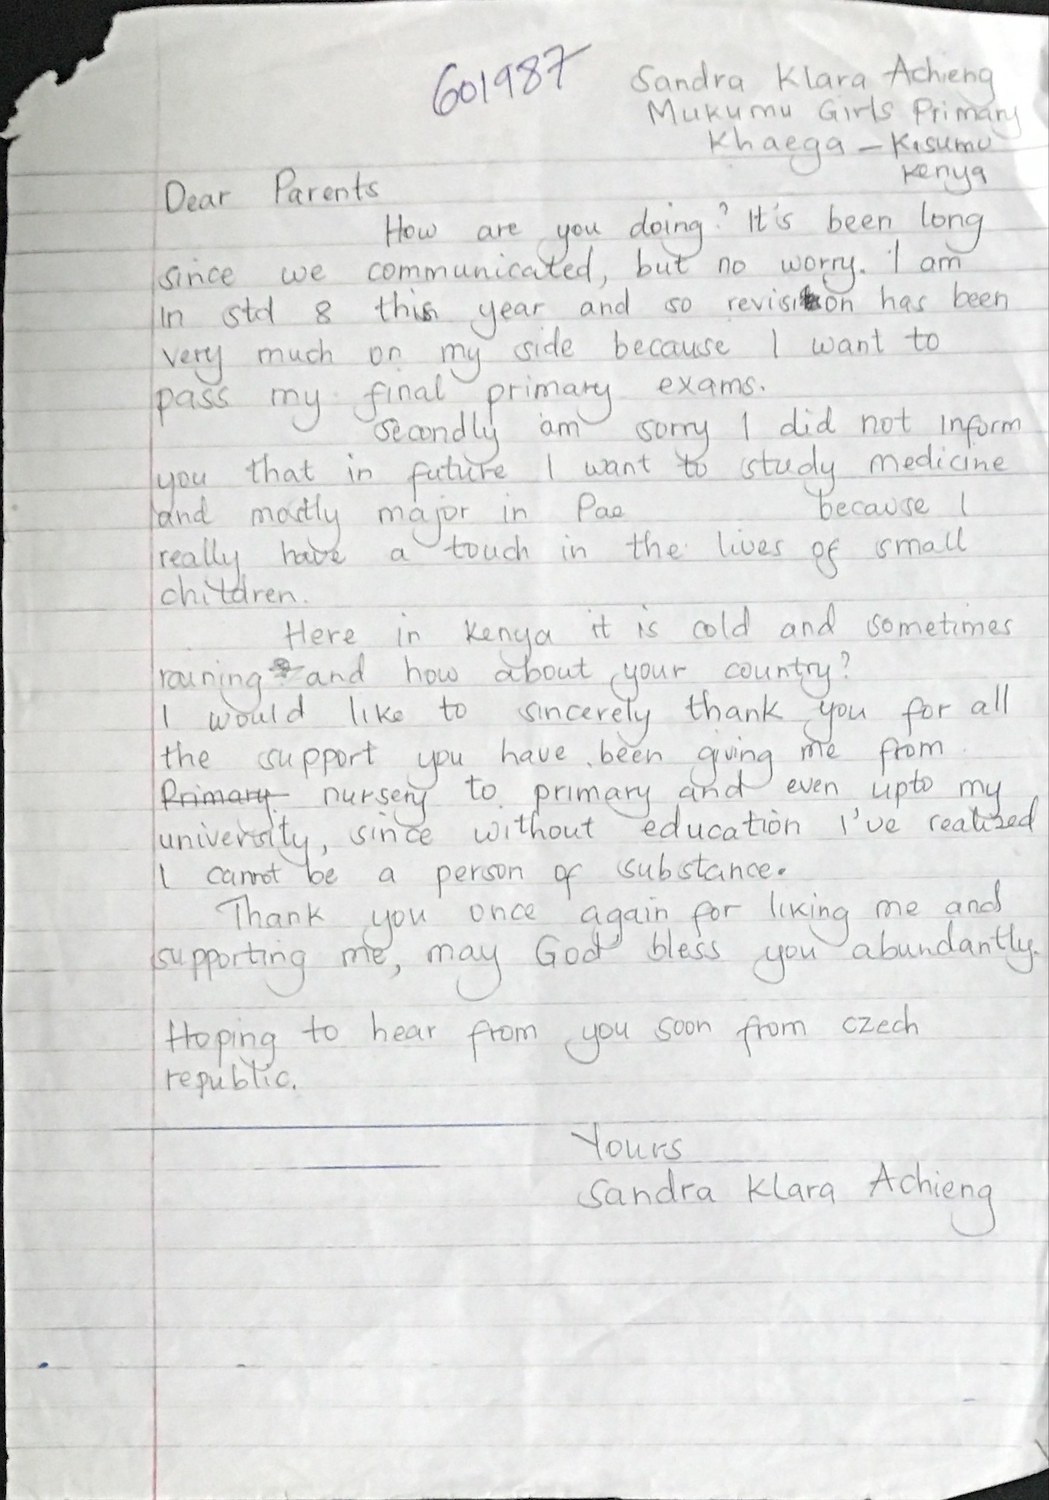 601987
Sandra Klara Achieng
Mukumu Girls Primary
Khaega – Kisumu
Kenya
Dear Parents
How are you doing? It's been long
since we communicated, but no worry. I am
in std 8 this year and so revision has been
very much on my side because I want to
pass my final primary exams.
Secondly am sorry I did not inform
you that in future I want to study medicine
and mostly major in Pae because I
really have a touch in the lives of small
children.
Here in Kenya it is cold and sometimes
raining and how about your country?
I would like to sincerely thank you for all
the support you have been giving me from
Primary nursery to primary and even upto my
university, since without education I've realized
I cannot be a person of substance.
Thank you once again for liking me and
supporting me, may God bless you abundantly.
Hoping to hear from you soon from czech
republic.
Yours
Sandra Klara Achieng